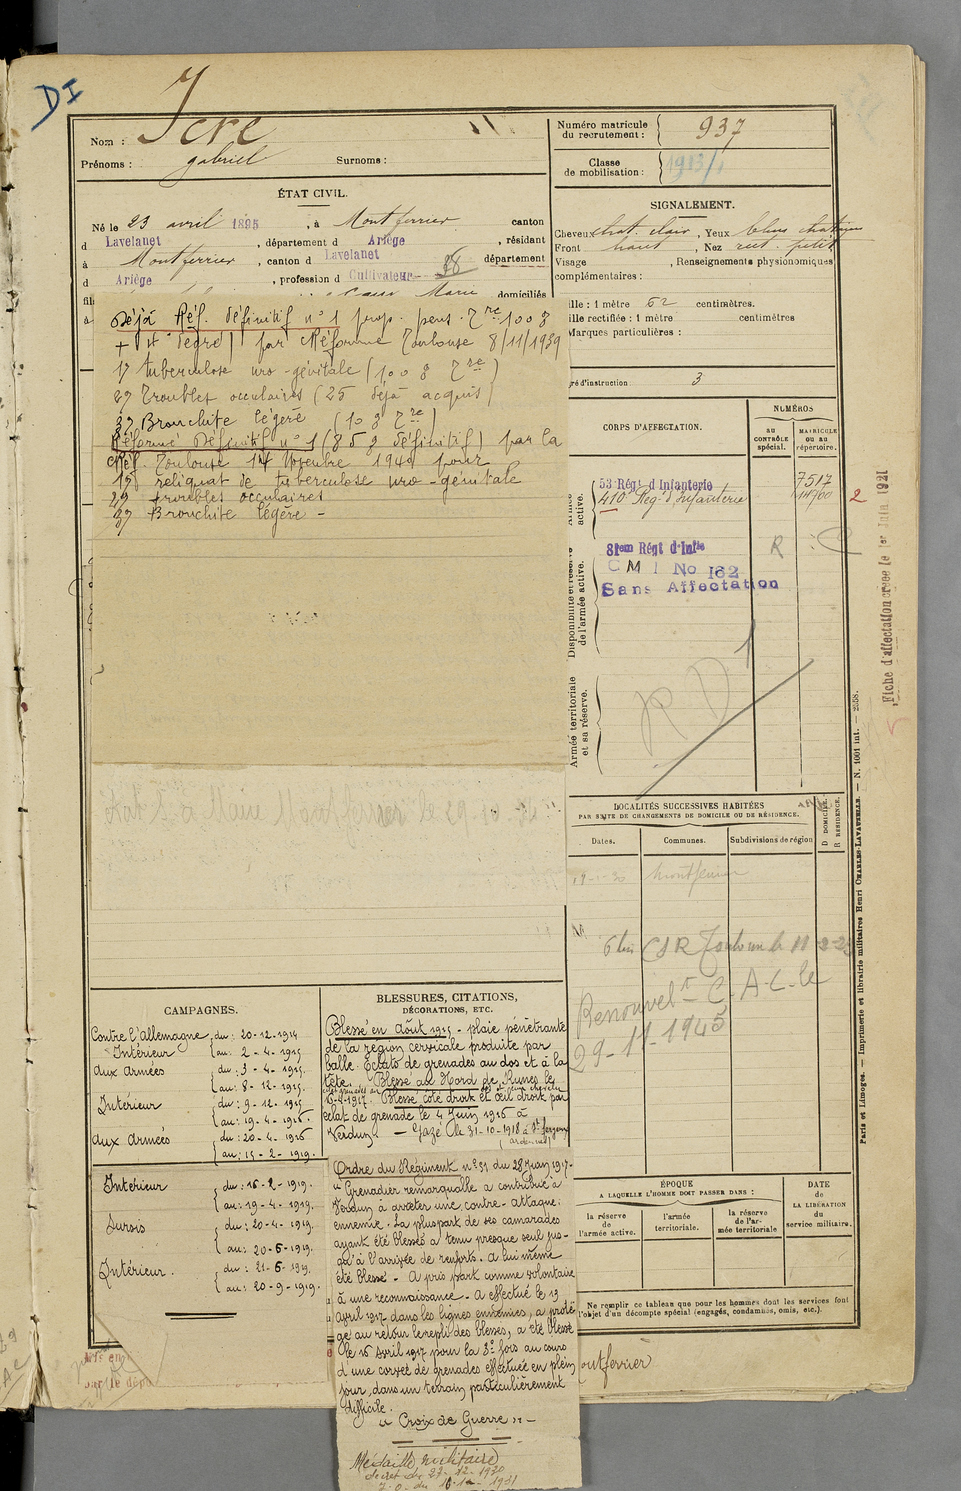 DI
Nom : Icre
Prénoms : gabriel Surnoms :
Numéro matricule
du recrutement : 937
Classe
de mobilisation : 1913/1
ÉTAT CIVIL.
Né le 23 avril 1895, à Montferrier canton
d Lavelanet, département d Ariège, résidant
à Montferrier, canton d Lavelanet département
d Ariège, profession d Cultivateur
Marie domiciliés
SIGNALEMENT.
Cheveux chat. clair, Yeux bleus
Front haut, Nez rect. petit
Visage , Renseignements physionomiques
complémentaires :
ille : 1 mètre 62 centimètres.
ille rectifiée : 1 mètre centimètres
Marques particulières :
gré d'instruction 3
Déjà Réf. définitif n° 1 prop. pens.
par Réforme Toulouse 8/11/1939
1/ tuberculose uro-génitale
2/ Troubles occulaires (25 déjà acquis)
3/ Bronchite légère
Réformé Définitif n° 1 définitif) par la
Réf. Toulouse 14 Novembre pour
1/ reliquat de tuberculose uro-génitale
2/ troubles occulaires
3/ Bronchite légère -
CORPS D'AFFECTATION.
NUMÉROS
AU CONTRÔLE spécial.
MATRICULE ou au répertoire.
Armée active.
53 Régt d'Infanterie 7517
410 Rég. d'Infanterie
2
Disponibilité et réserve de l'armée active.
81eme Régt d'Infie R
C M I No 162
Sans Affectation
Armée territoriale et sa réserve.
R D 1
Fiche d'affectation créée le 1er Juin 1921
LOCALITÉS SUCCESSIVES HABITÉES
PAR SUITE DE CHANGEMENTS DE DOMICILE OU DE RÉSIDENCE.
Dates. Communes. Subdivisions de région
D DOMICILE.
R RÉSIDENCE.
Montferrier
CSR Toulouse
Renouvelt C.A.C. le
29-11-1945
CAMPAGNES.
Contre l'Allemagne du : 20-12-1914
Intérieur au : 2-4-1915
aux Armées du : 3-4-1915.
au : 8-12-1915.
Intérieur du : 9-12-1915
au : 19-4-1916.
aux Armées du : 20-4-1916
au : 15-2-1919.
Intérieur du : 16-2-1919.
au : 19-4-1919.
Sursis du : 20-4-1919.
au : 20-6-1919.
Intérieur. du : 21-6-1919.
au : 20-9-1919.
BLESSURES, CITATIONS,
DÉCORATIONS, ETC.
Blessé en Août 1915 - plaie pénétrante
de la région cervicale produite par
balle. Eclats de grenades au dos et à la
tête. Blessé au Nord de le
16-4-1917. Blessé côté droit et œil droit par
éclat de grenade le 4 Juin 1916 à
Verdun - Gazé le 31-10-1918 à
(ardennes)
Ordre du Régiment n° 31 du 28 Juin 1917-
" Grenadier remarquable a contribué à
Verdun à arrêter une contre-attaque
ennemie. La plupart de ses camarades
ayant été blessés a tenu presque seul jus-
qu'à l'arrivée de renforts. A lui même
été blessé - A pris part comme volontaire
à une reconnaissance. A effectué le 13
avril 1917 dans les lignes ennemies, a proté-
gé au retour le repli des blessés, a été blessé
le 16 Avril 1917 pour la 3e fois au cours
d'une corvée de grenades effectuée en plein
jour, dans un terrain particulièrement
difficile.
" Croix de Guerre " -
Médaille militaire
décret du 27-12-1930
ÉPOQUE
A LAQUELLE L'HOMME DOIT PASSER DANS :
la réserve de l'armée active.
l'armée territoriale.
la réserve de l'armée territoriale
DATE de LA LIBÉRATION du service militaire.
Ne remplir ce tableau que pour les hommes dont les services font
l'objet d'un décompte spécial (engagés, condamnés, omis, etc.).
ontferrier
Paris et Limoges. — Imprimerie et librairie militaires Henri CHARLES-LAVAUZELLE. — N. 1001 int. — 2558.